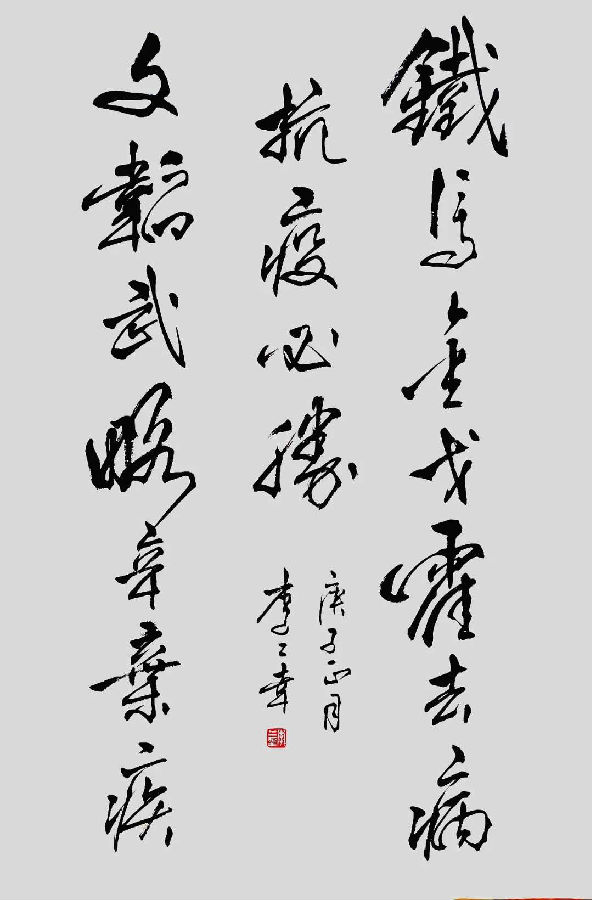 鐵馬金戈霍去病
抗疫必勝
庚子正月
李
文韜武略辛棄疾